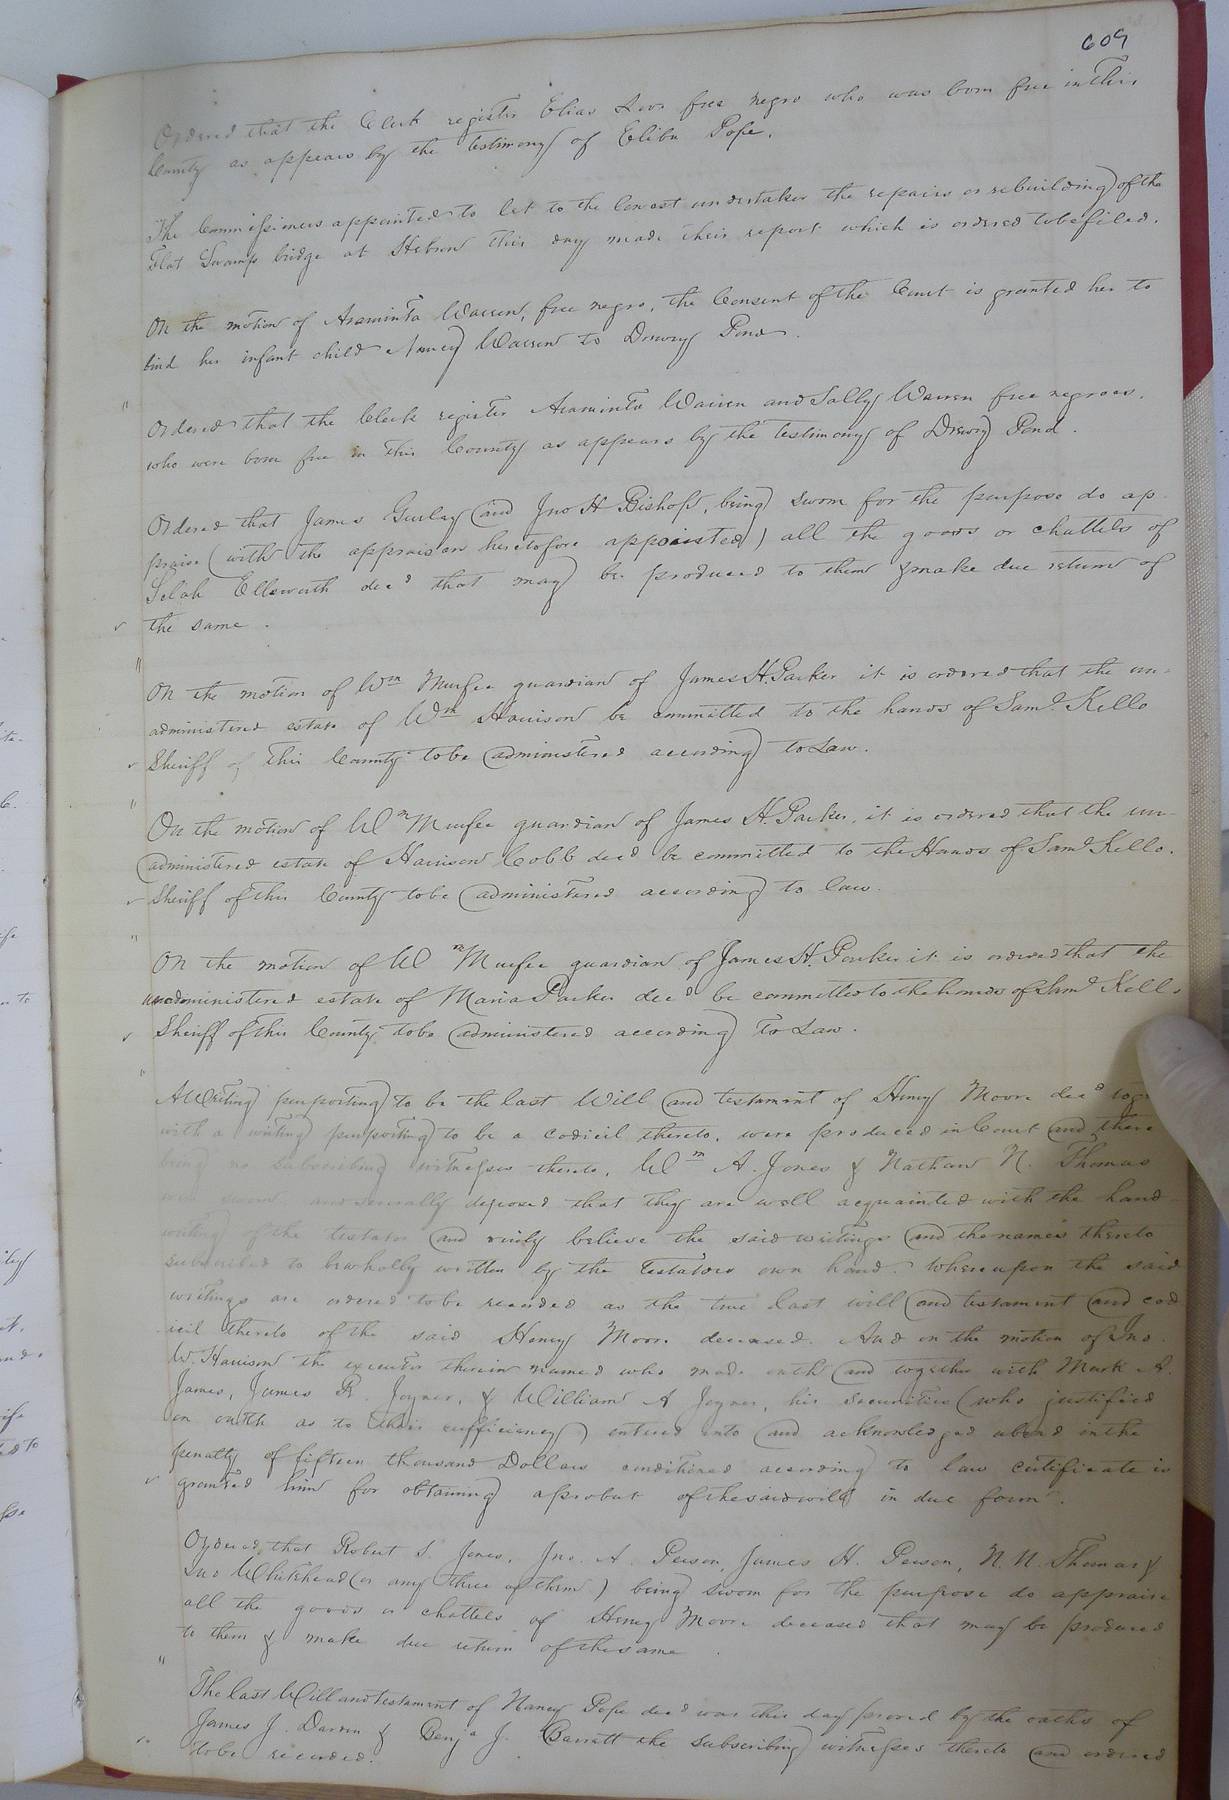 609
Ordered that the Clerk register Elias free negro who was born free in this
County as appears by the testimony of Elibu Pope.
The Commissioners appointed to let to the lowest undertaker the repairs or rebuilding of the
Flat Swamp bridge at Hebron this day made their report which is ordered to be filed.
On the motion of Araminta Warren, free negro, the Consent of the Court is granted her to
bind her infant child Nancy Warren to Drewry Pond.
Ordered that the Clerk register Araminta Warren and Sally Warren free negroes.
who were born free in this County as appears by the testimony of Drewry Pond.
Ordered that James Gurley and Jno H Bishop, being sworn for the purpose do ap
praise (with the appraisers heretofore appointed) all the goods or chattels of
Selah Ellsworth decd that may be produced to them & make due return of
the same.
On the motion of Wm Murfee guardian of James H. Parker it is ordered that the un-
administered estate of Wm Harrison be committed to the hands of Saml Kello
Sheriff of this County to be administered according to Law.
On the motion of Wm Murfee guardian of James H. Parker, it is ordered that the un-
administered estate of Harrison Cobb decd be committed to the Hands of Saml Kello.
Sheriff of this County to be administered according to law.
On the motion of Wm Murfee guardian of James H. Parker it is ordered that the
unadministered estate of Maria Parker decd be committed to the hands of Saml Kello
Sheriff of this County to be administered according to Law.
A Writing purporting to be the last Will and testament of Henry Moore decd
with a writing purporting to be a codicil thereto, were produced in Court and there
being no subscribing witnesses thereto, Wm A. Jones & Nathan N. Thomas
were sworn and severally deposed that they are well acquainted with the hand
writing of the testator and verily believe the said writings and the names thereto
subscribed to be wholly written by the testators own hand. Whereupon the said
writings are ordered to be recorded as the true last will and testament and cod
icil thereto of the said Henry Moore deceased. And on the motion of Jno.
W. Harrison the executor therein named who made oath and together with Mark A.
James, James R. Joyner, & William A Joyner, his securities (who justified
on oath as to their sufficiency) entered into and acknowledged a bond in the
penalty of fifteen thousand Dollars conditioned according to law certificate is
granted him for obtaining a probat of the said will in due form.
Ordered that Robert S. Jones, Jno. A. Person, James H. Person, N. N. Thomas &
Jno Whitehead (or any three of them) being sworn for the purpose do appraise
all the goods or chattels of Henry Moore deceased that may be produced
to them & make due return of the same.
The last Will and testament of Nancy Pope decd was this day proved by the oaths of
James J. Darden & Benja J. Barratt the subscribing witnesses thereto and ordered
to be recorded.